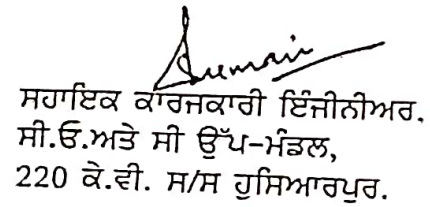 ਸਹਾਇਕ ਕਾਰਜਕਾਰੀ ਇੰਜੀਨੀਅਰ.
ਸੀ.ਓ.ਅਤੇ ਸੀ ਉੱਪ-ਮੰਡਲ,
220 ਕੇ.ਵੀ. ਸ/ਸ ਹੁਸਿਆਰਪੁਰ.